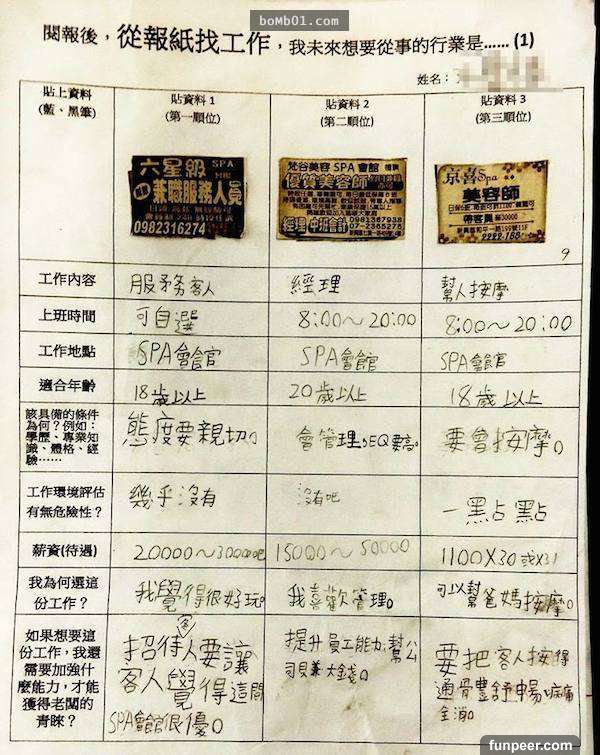 boMb01.com
閱報後，從報紙找工作，我未來想要從事的行業是……(1)
姓名：
貼上資料 貼資料 1 貼資料 2 貼資料 3
(藍、黑筆) (第一順位) (第二順位) (第三順位)
六星級 SPA
兼職服務人員
0982316274
梵谷美容 SPA 會館
優質美容師
0981387938
經理 中班會計 07-2365276
京喜Spa
美容師
帶客黑 30000
9
工作內容 服務客人 經理 幫人按摩
上班時間 可自選 8:00~20:00 8:00~20:00
工作地點 SPA會館 SPA會館 SPA會館
適合年齡 18歲以上 20歲以上 18歲以上
該具備的條件
為何？例如：
學歷、專業知
識、體格、經
驗……
態度要親切。 會管理,EQ要高。 要會按摩。
工作環境評估
有無危險性？
幾乎沒有 沒有吧 一點點
薪資(待遇) 20000~30000吧 15000~50000 1100X30或X31
我為何選這
份工作？
我覺得很好玩。 我喜歡管理。 可以幫爸媽按摩。
如果想要這
份工作，我還
需要加強什
麼能力，才能
獲得老闆的
青睞？
招待客人要讓
客人覺得這間
SPA會館很優。
提升員工能力,幫公
司賺大錢。
要把客人按得
通骨豐舒暢,痠痛
全消。
funpeer.com